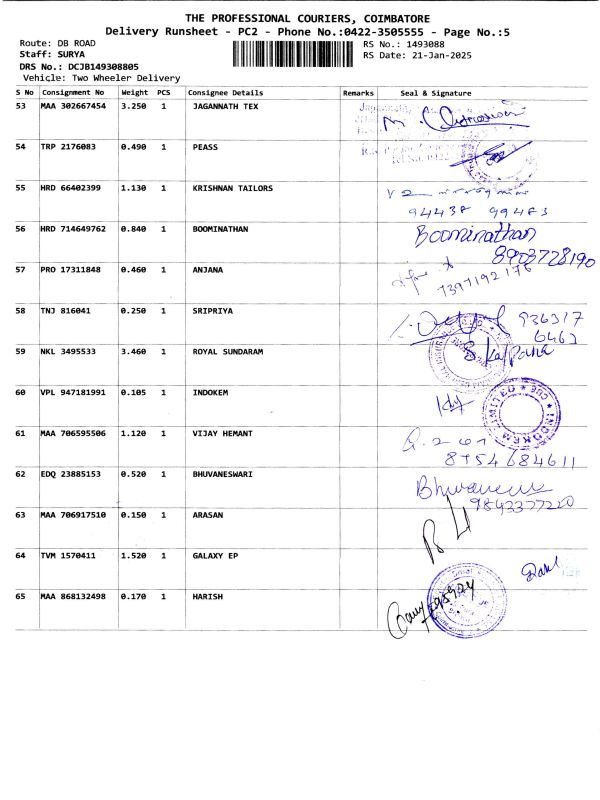 THE PROFESSIONAL COURIERS, COIMBATORE
Delivery Runsheet - PC2 - Phone No.:0422-3505555 - Page No.:5
Route: DB ROAD RS No.: 1493088
Staff: SURYA RS Date: 21-Jan-2025
DRS No.: DCJB149308805
Vehicle: Two Wheeler Delivery
S No Consignment No Weight PCS Consignee Details Remarks Seal & Signature
53 MAA 302667454 3.250 1 JAGANNATH TEX
54 TRP 2176083 0.490 1 PEASS
55 HRD 66402399 1.130 1 KRISHNAN TAILORS
94438 99483
56 HRD 714649762 0.840 1 BOOMINATHAN Boominathan
8903728190
57 PRO 17311848 0.460 1 ANJANA
7397192176
58 TNJ 816041 0.250 1 SRIPRIYA 936317
6463
59 NKL 3495533 3.460 1 ROYAL SUNDARAM S. Kalpana
60 VPL 947181991 0.105 1 INDOKEM
61 MAA 706595506 1.120 1 VIJAY HEMANT
8754684611
62 EDQ 23885153 0.520 1 BHUVANESWARI
9843377220
63 MAA 706917510 0.150 1 ARASAN
64 TVM 1570411 1.520 1 GALAXY EP
65 MAA 868132498 0.170 1 HARISH